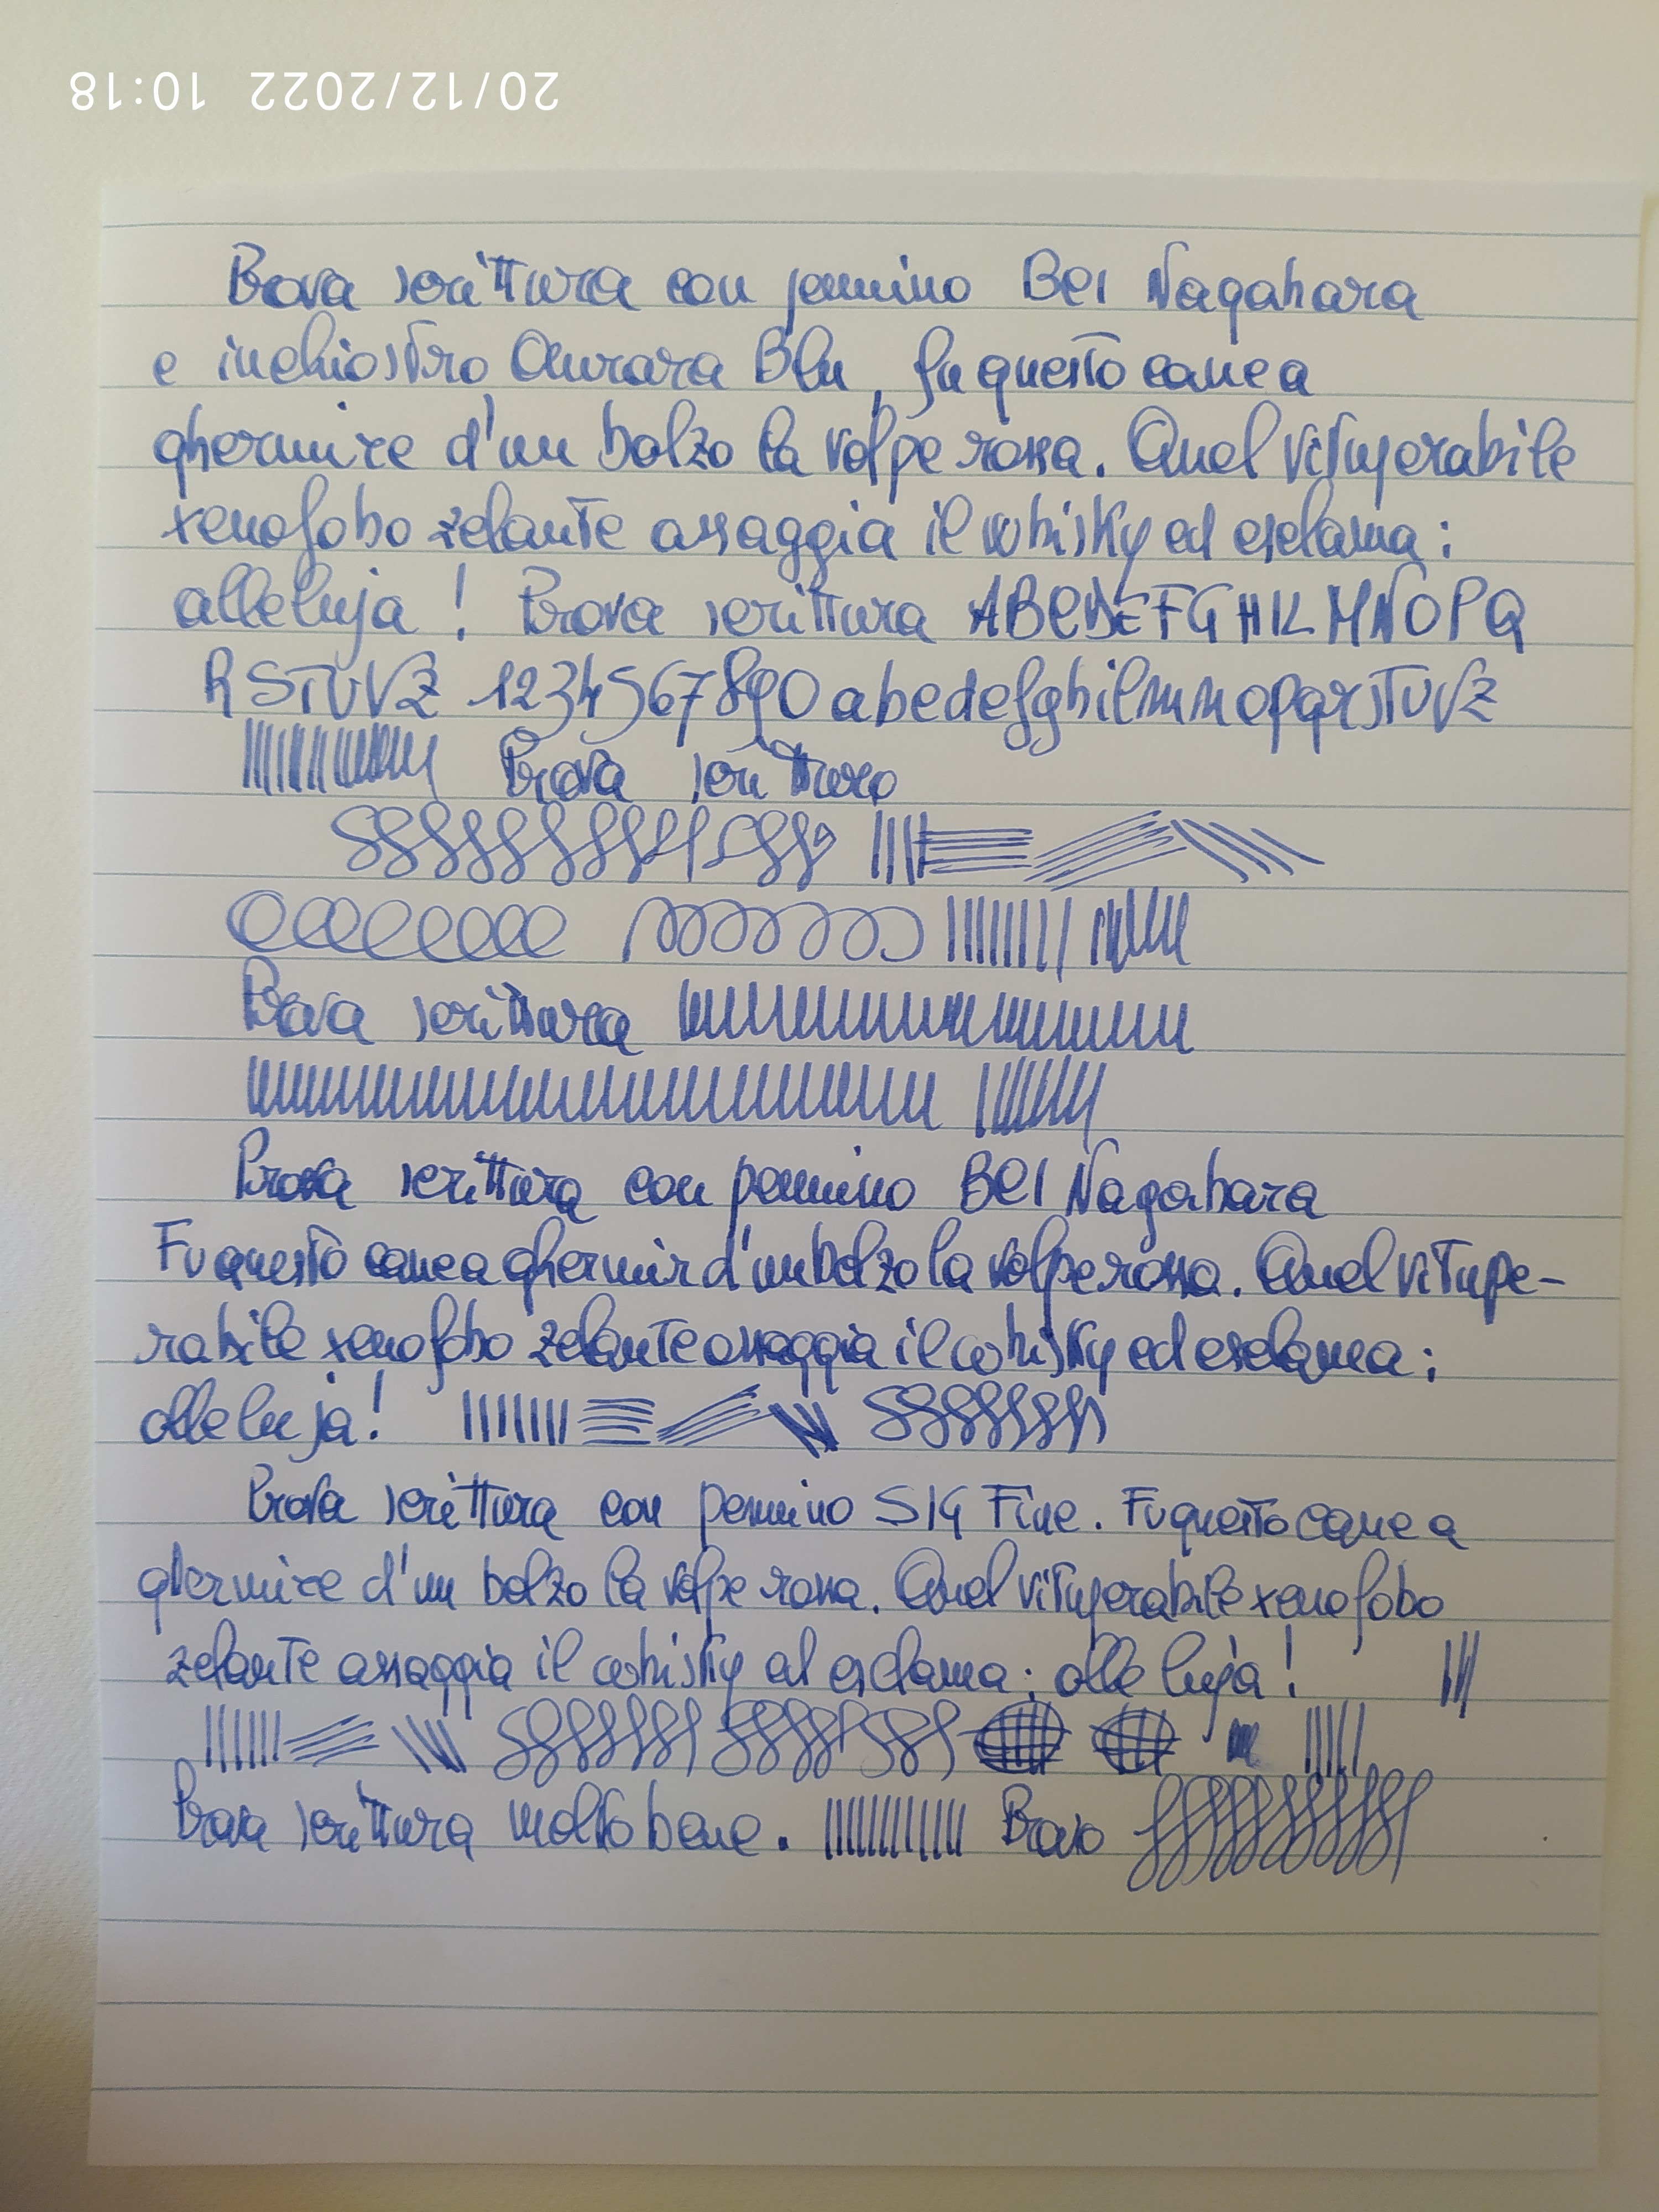 20/12/2022 10:18
Prova scrittura con pennino BCI Nagahara
e inchiostro Aurora Blu, fu questo cane a
ghermire d'un balzo la volpe rossa. Quel vituperabile
xenofobo zelante assaggia il whisky ed esclama:
alleluja! Prova scrittura ABCDEFGHILMNOPQ
RSTUVZ 1234567890 abcdefghilmnopqrstuvz
Prova scrittura
Prova scrittura
Prova scrittura con pennino BCI Nagahara
Fu questo cane a ghermir d'un balzo la volpe rossa. Quel vitupe-
rabile xenofobo zelante assaggia il whisky ed esclama:
alleluja!
Prova scrittura con pennino SIG Fine. Fu questo cane a
ghermire d'un balzo la volpe rossa. Quel vituperabile xenofobo
zelante assaggia il whisky ed esclama: alleluja!
Prova scrittura molto bene. Prova